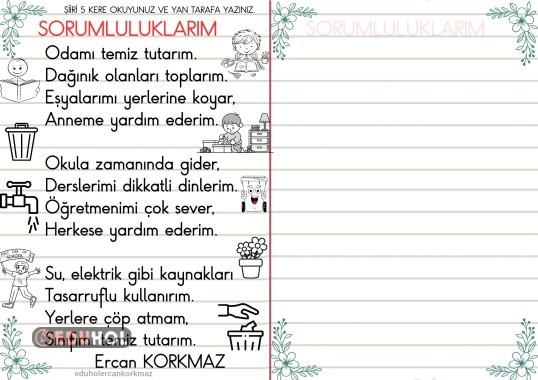 ŞİİRİ 5 KERE OKUYUNUZ VE YAN TARAFA YAZINIZ.
SORUMLULUKLARIM
Odamı temiz tutarım.
Dağınık olanları toplarım.
Eşyalarımı yerlerine koyar,
Anneme yardım ederim.
Okula zamanında gider,
Derslerimi dikkatli dinlerim.
Öğretmenimi çok sever,
Herkese yardım ederim.
Su, elektrik gibi kaynakları
Tasarruflu kullanırım.
Yerlere çöp atmam,
Sınıfımı temiz tutarım.
EDUHOL
Ercan KORKMAZ
eduholercankorkmaz
SORUMLULUKLARIM